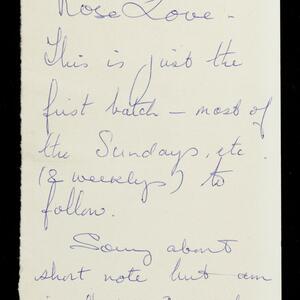 Rose Love -
This is just the
first batch — most of
the Sundays, etc.
(& weeklys) to
follow.
Sorry about
short note but am